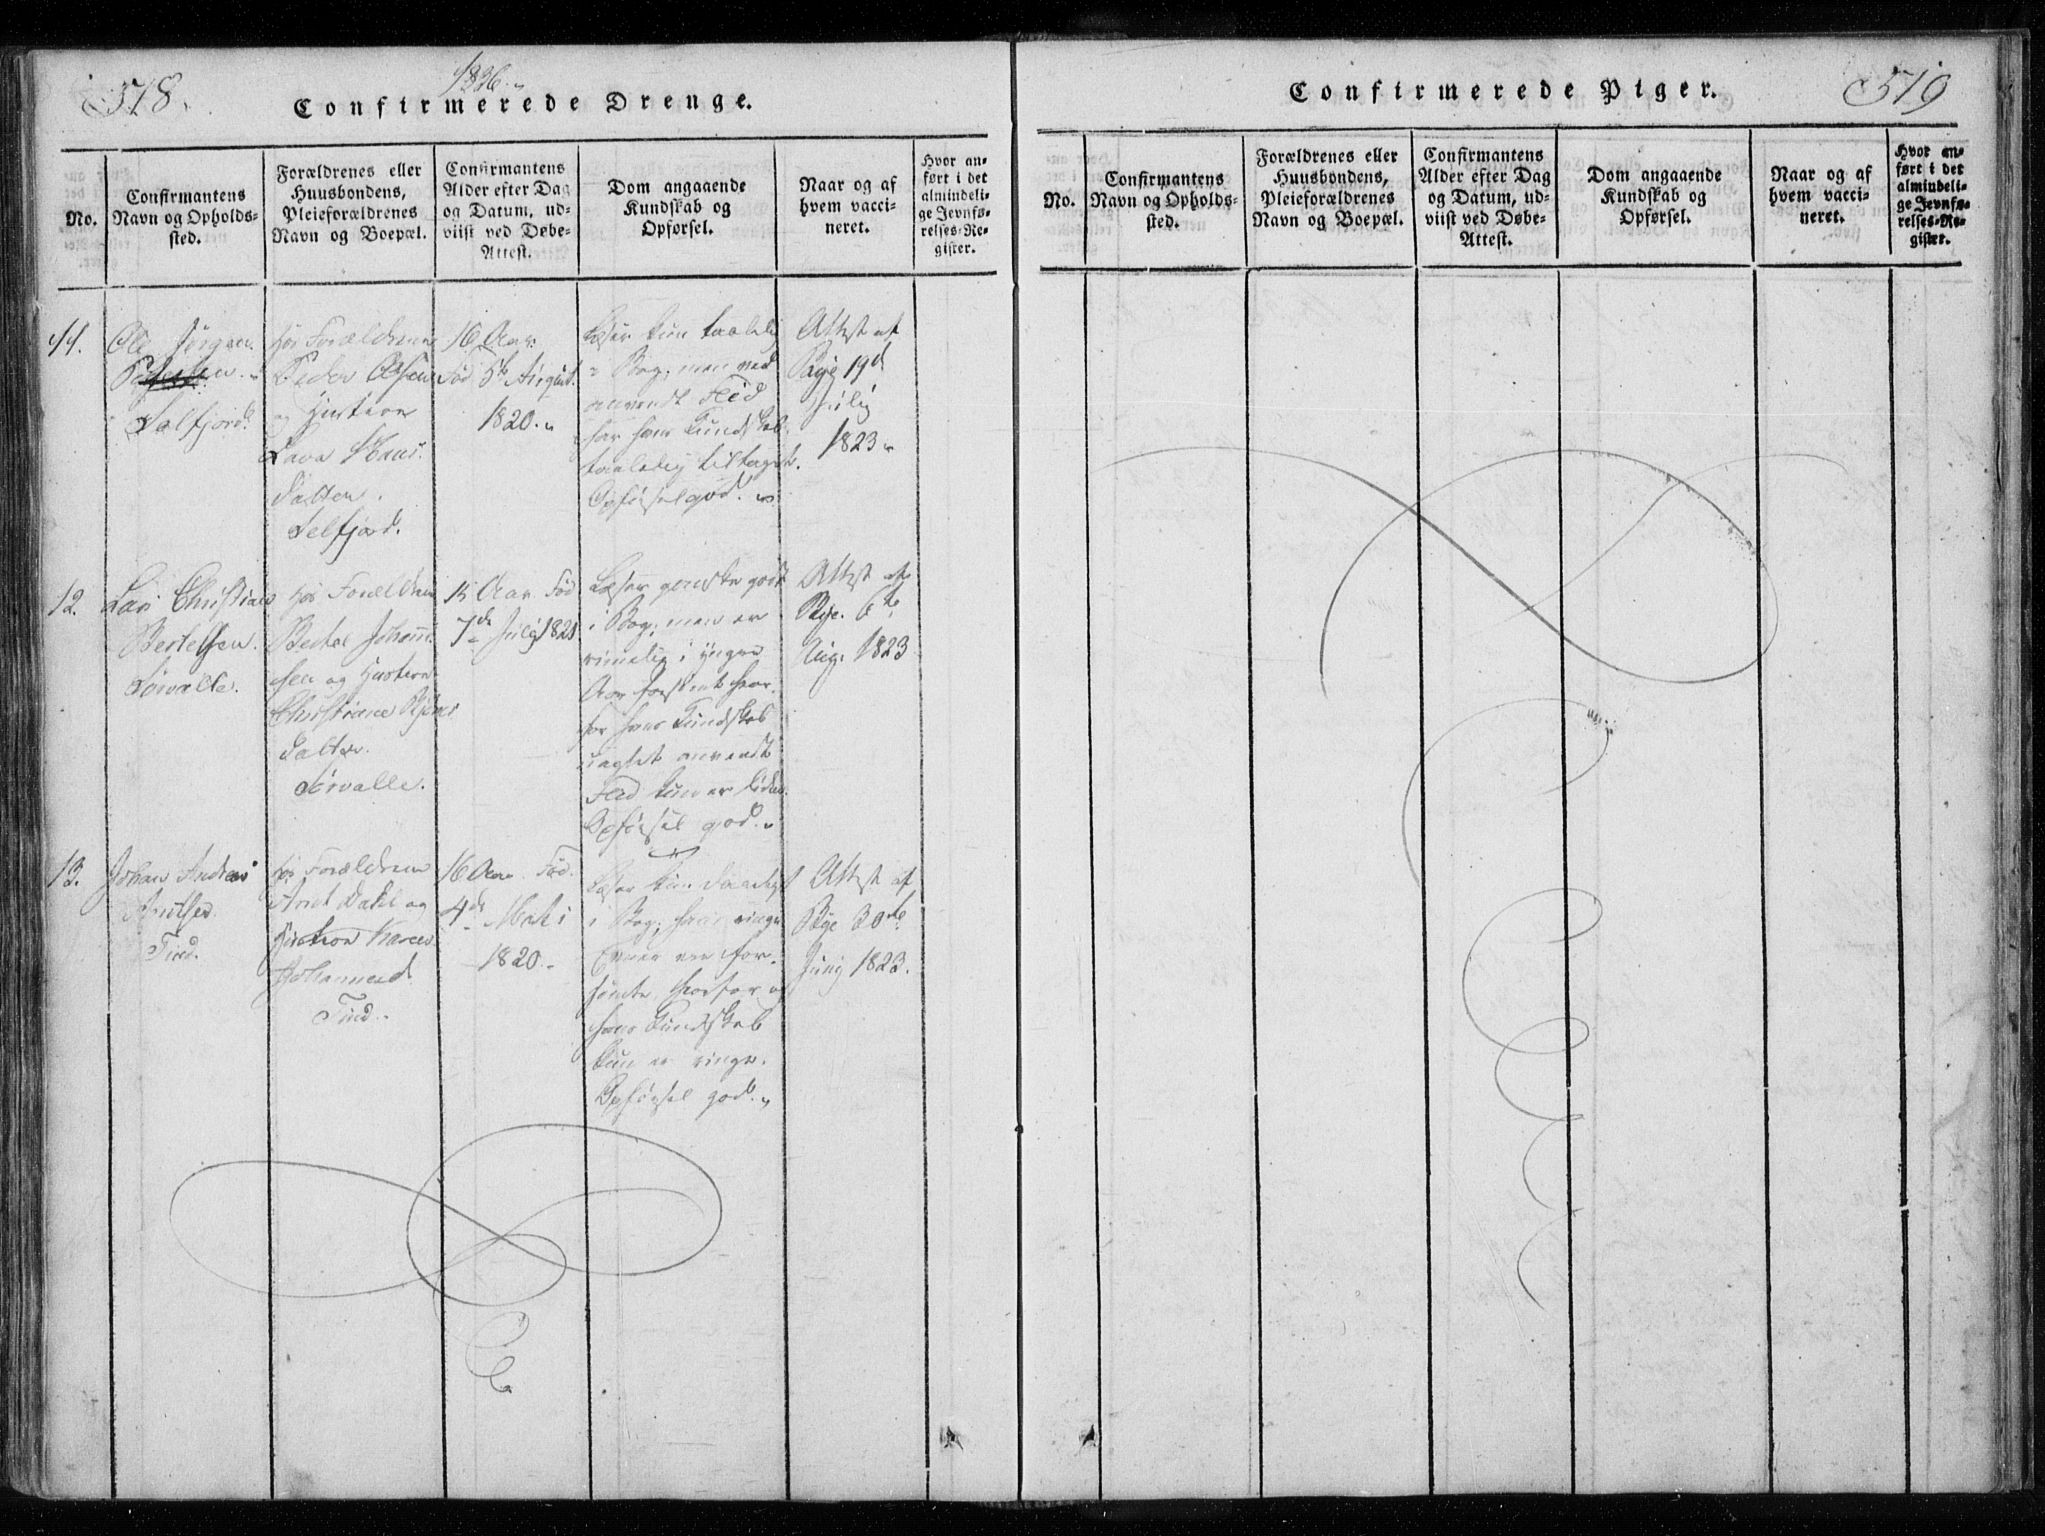 518.
1836.
Confirmerede Drenge.
No.
Confirmantens
Navn og Opholds-
sted.
Forældrenes eller
Huusbondens,
Pleieforældrenes
Navn og Boepæl.
Confirmantens
Alder efter Dag
og Datum, ud-
viist ved Døbe-
Attest.
Dom angaaende
Kundskab og
Opførsel.
Naar og af
hvem vacci-
neret.
Hvor an-
ført i det
almindeli-
ge Jevnfø-
relses-Re-
gister.
11.
Ole Jørgen
Selfjord.
hos Forældrene
Peder Olsen
og Hustroe
Lava Hans-
datter.
Selfjord.
16 Aar
Fød 5te August
1820.
Læser kun taalelig
i Bog; men ved
anvendt Flid
har hans Kundskab
taalelig tiltaget.
Opførsel god.
Attest af
Bye 19d
July
1823
12.
Lars Christian
Bertelsen.
Sørvalle.
hos Forældrene
Bertel Johann-
sen og Hustroe
Christiane
Datter.
Sørvalle.
15 Aar Fød
7de July 1821
Læser ganske godt
i Bog; men er
rimelig i yngre
Aar forsømt hvor-
for hans Kundskab
uagtet anvendt
Flid kun er liden.
Opførsel god.
Attest af
Bye. 6te
Aug. 1823
13.
Johan Andreas
Arntsen.
Tind.
hos Forældrene
Arnt Dahl og
Hustroe Karen
Johannesd.
Tind.
16 Aar Fød.
4de Marti
1820.
Læser kun daarligt
i Bog; hans ringe
Evner ere for-
sømte, hvorfor og
hans Kundskab
kun er ringe.
Opførsel god.
Attest af
Bye 30te
Juny 1823.
Confirmerede Piger.
519
No.
Confirmantens
Navn og Opholds-
sted.
Forældrenes eller
Huusbondens,
Pleieforældrenes
Navn og Boepæl.
Confirmantens
Alder efter Dag
og Datum, ud-
viist ved Døbe-
Attest.
Dom angaaende
Kundskab og
Opførsel.
Naar og af
hvem vacci-
neret.
Hvor an-
ført i det
almindeli-
ge Jevnfø-
relses-Re-
gister.